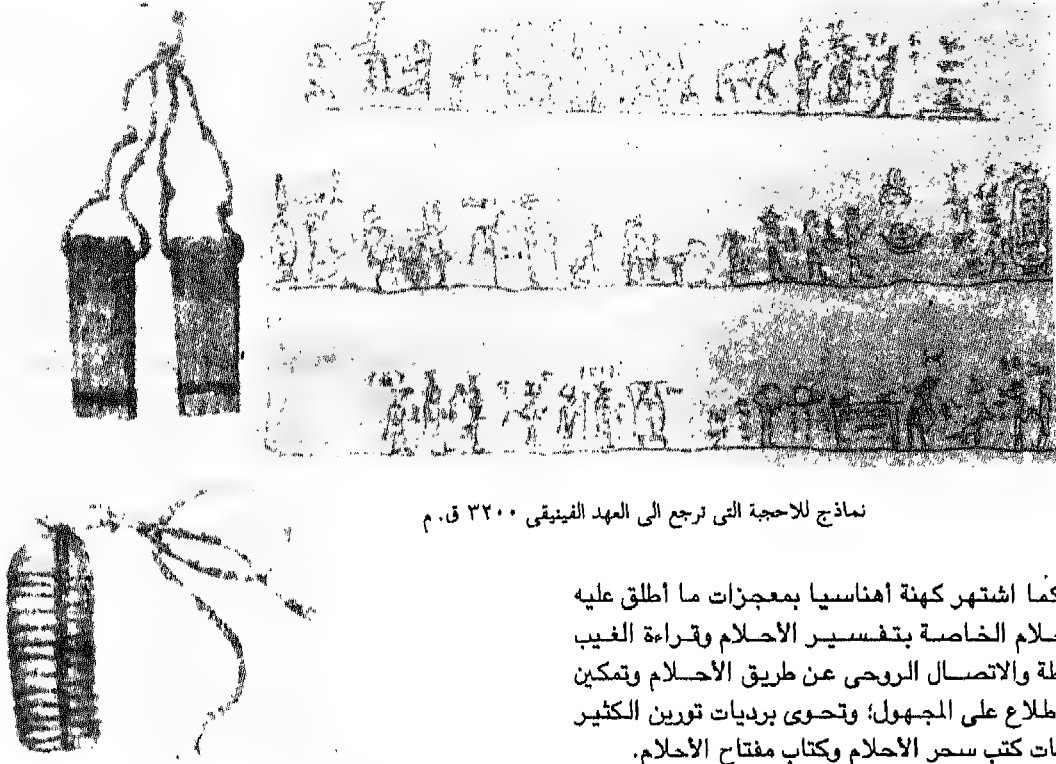 نماذج للاحجبة التى ترجع الى العهد الفينيقى ٣٢٠٠ ق. م
كما اشتهر كهنة أهناسيا بمعجزات ما أطلق عليه
الخاصة بتفسير الأحلام وقراءة الغيب
والاتصال الروحى عن طريق الأحلام وتمكين
على المجهول؛ وتحوى برديات تورين الكثير
كتب سحر الأحلام وكتاب مفتاح الأحلام.